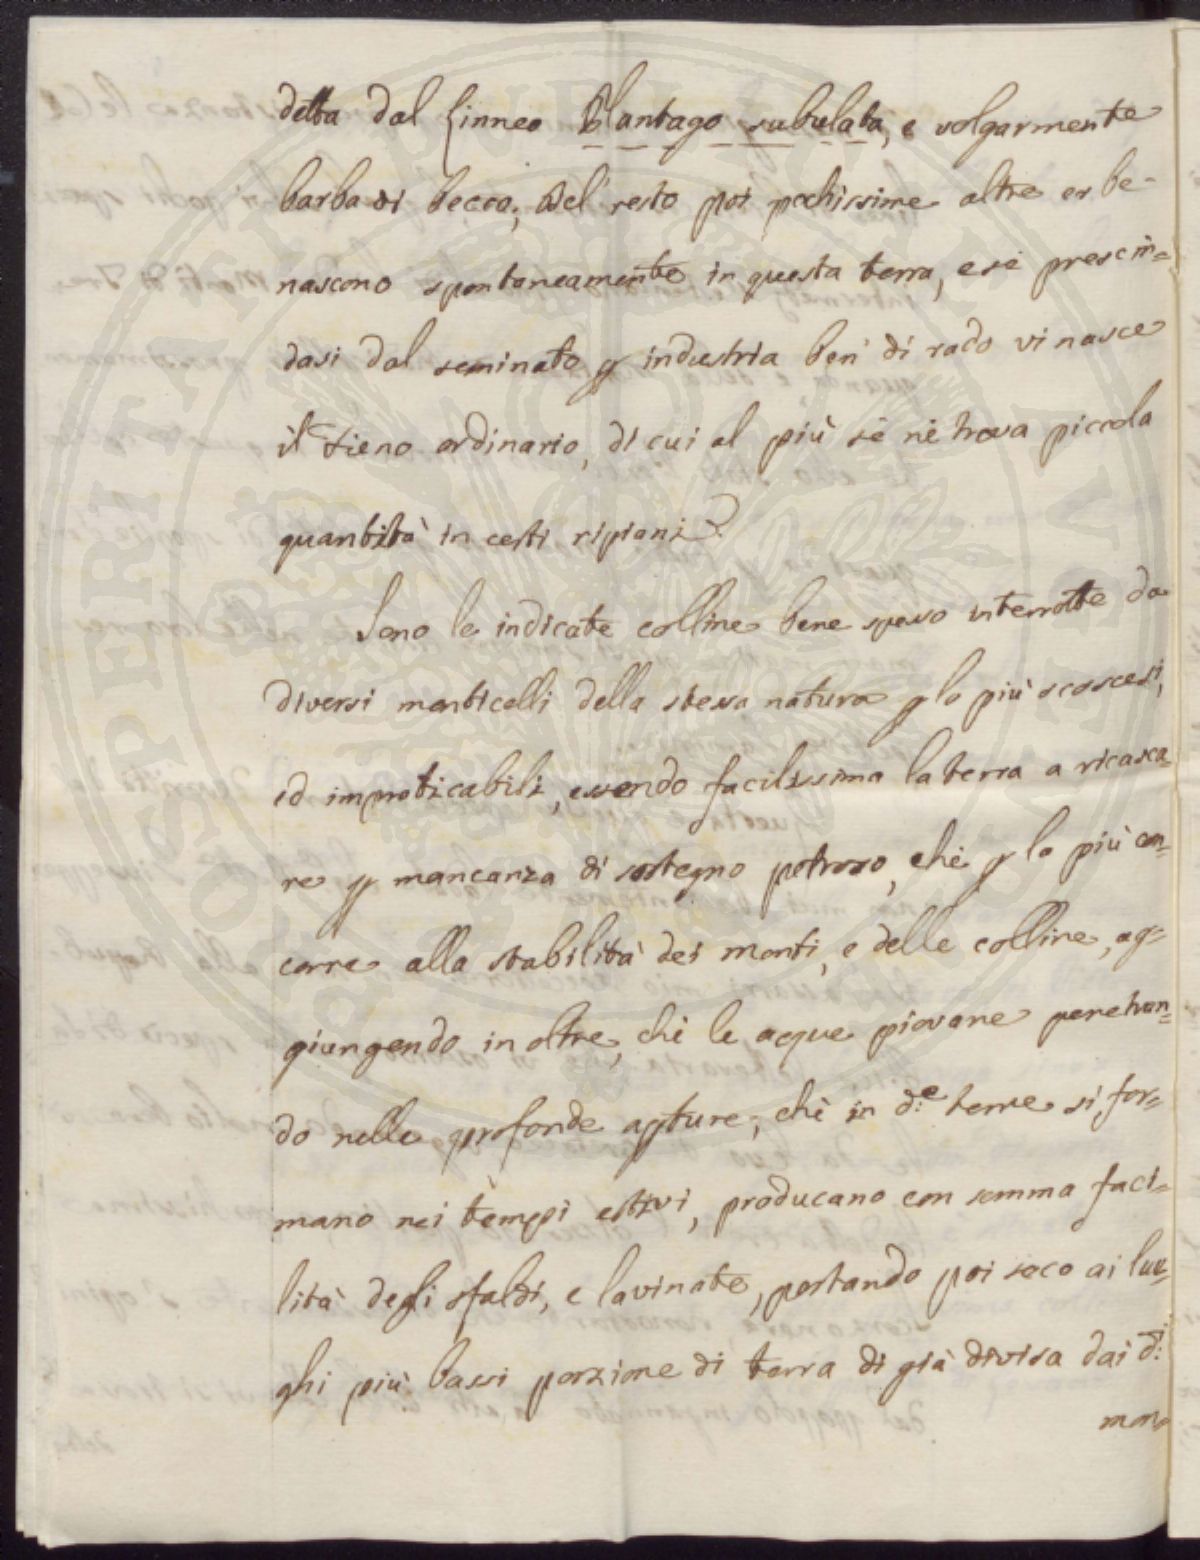 detta dal Linneo Plantago subulata, e volgarmente
barba di becco; Del resto poi pochissime altre erbe-
nascono spontaneamente in questa terra, e se prescin=
dasi dal seminato p industria ben' di rado vi nasce
il Fieno ordinario, di cui al più sè nè trova piccola
quantità in certi ripiani.
Sono le indicate colline bene spesso interrotte da
diversi monticelli della stessa natura p lo più scoscesi,
ed impraticabili, essendo facilissima la terra a ricasca=
re p mancanza di sostegno petroso, chè p lo più con=
corre alla stabilità dei monti, e delle colline, ag=
giungendo inoltre, chè le acque piovane penetran=
do nelle profonde apture, chè in d.e terre si for=
mano nei tempi estivi, producano con somma faci=
lità degli sfaldi, e lavinate, portando poi seco ai luo=
ghi più bassi porzione di terra di già divisa dai d.i
mon=
SPERITAE PUBLIC